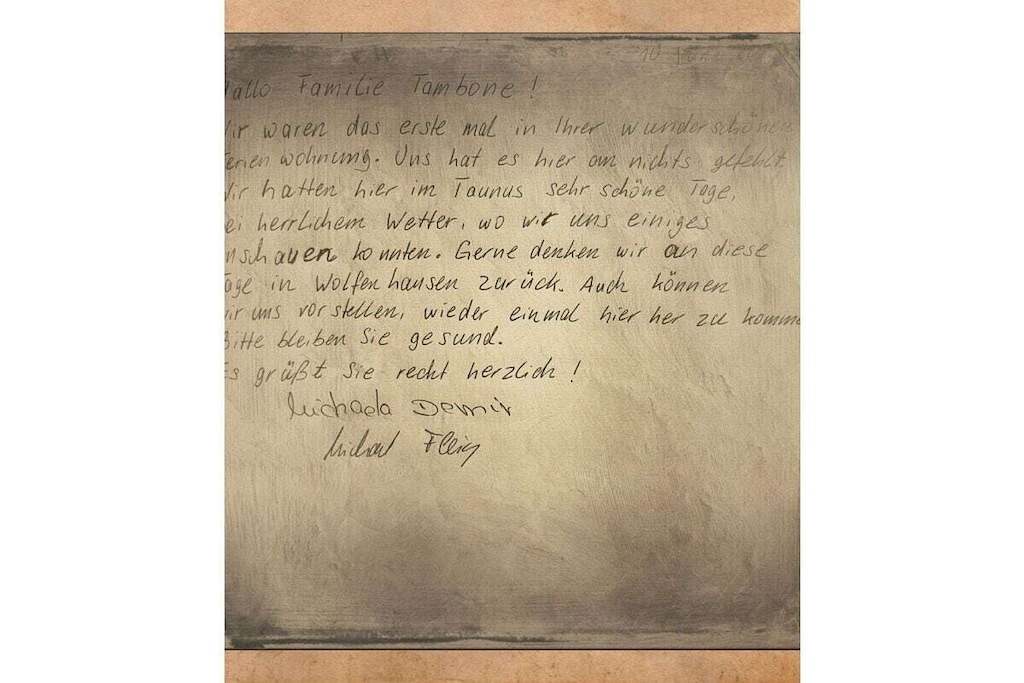 Hallo Familie Tambone!
Wir waren das erste mal in Ihrer wunderschönen
Ferienwohnung. Uns hat es hier an nichts gefehlt
Wir hatten hier im Taunus sehr schöne Tage,
bei herrlichem Wetter, wo wir uns einiges
anschauen konnten. Gerne denken wir an diese
Tage in Wolfenhausen zurück. Auch können
wir uns vorstellen, wieder einmal hierher zu komme
Bitte bleiben Sie gesund.
Es grüßt Sie recht herzlich!
Michaela Demir
Michael